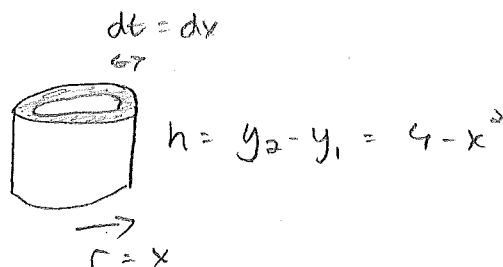 dt = dx
h = y₂ - y₁ = 4 - x²
r = x